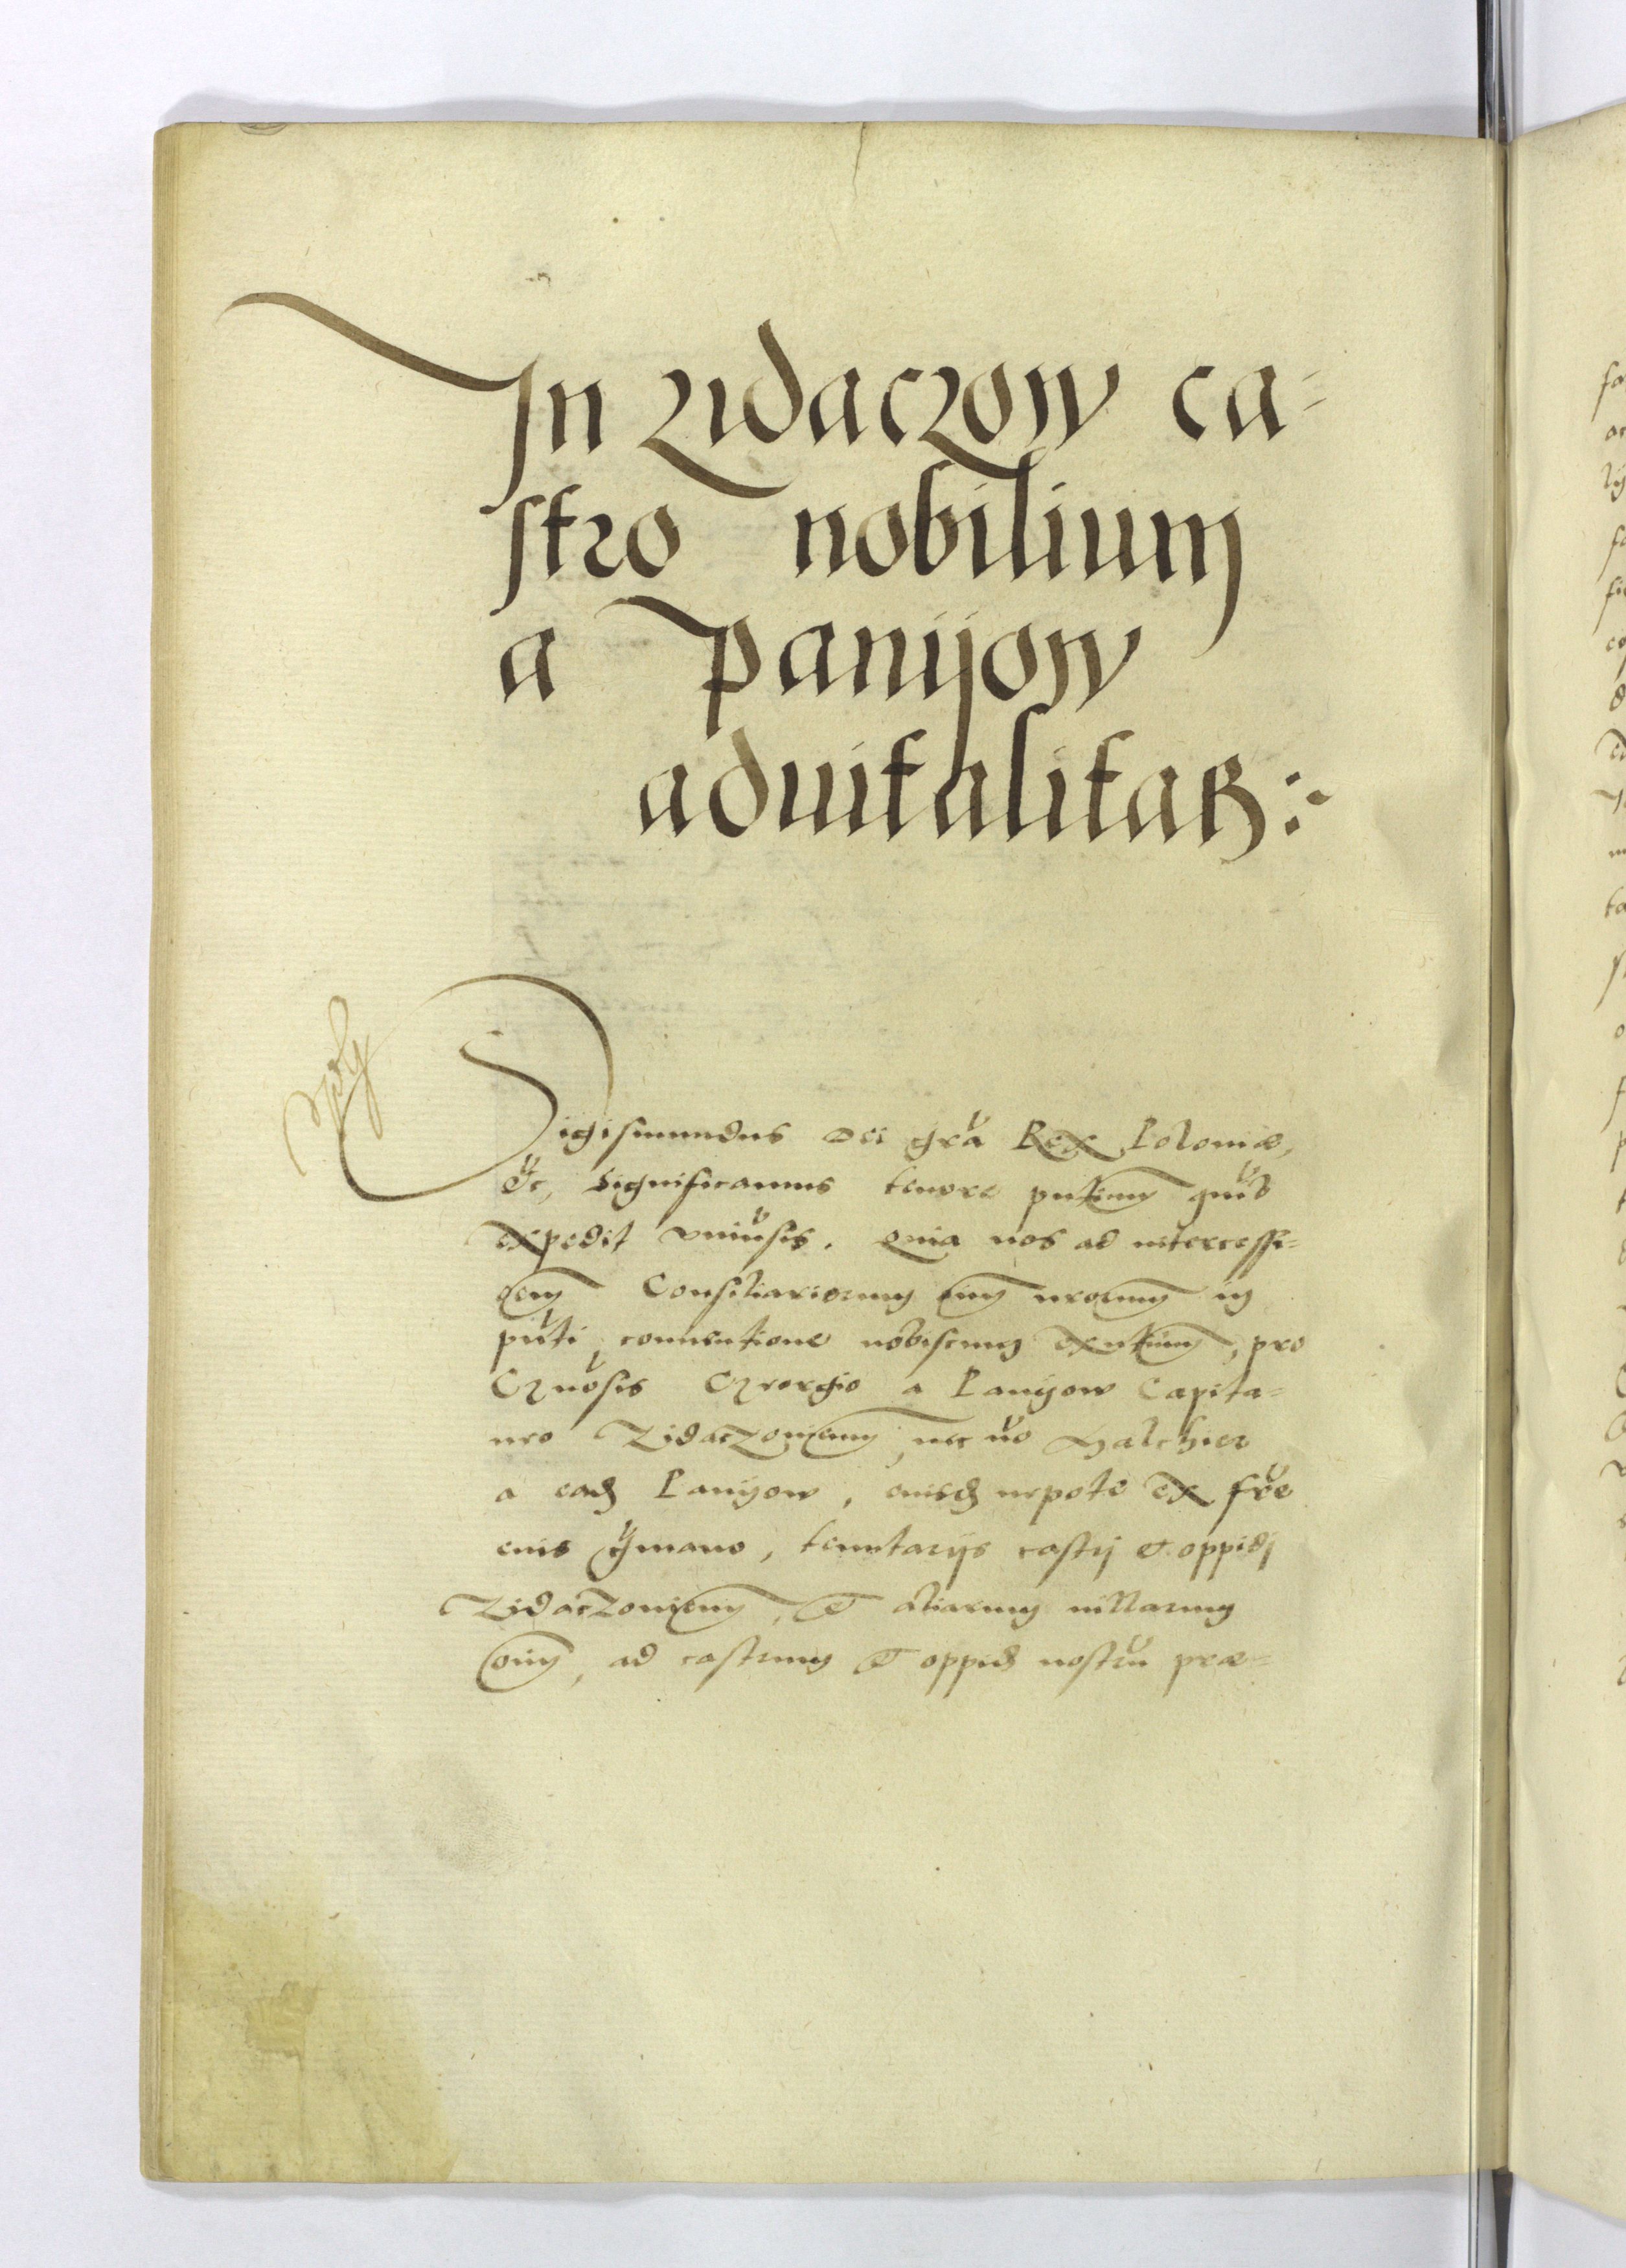 In Zidaczow ca=
stro nobilium
a Panijow
aduitalitas:
Sigismundus Dei gra Rex Poloniæ,
&c, Significamus tenore pntium quibs
expedit vniusis. Quia nos ad intercessi=
onem Consiliariorum nrorum in
pnti, conuentione nobiscum exntium, pro
Gnosis Georgio a Panijow Capita=
neo Zidaczouien, nec no Malchier
a ead Panijow, eiusd nepote ex fre
eius germano, tenutarijs castrj et oppidj
Zidaczouien, et aliarum uillarum
ad castrum et oppid nostru præ=